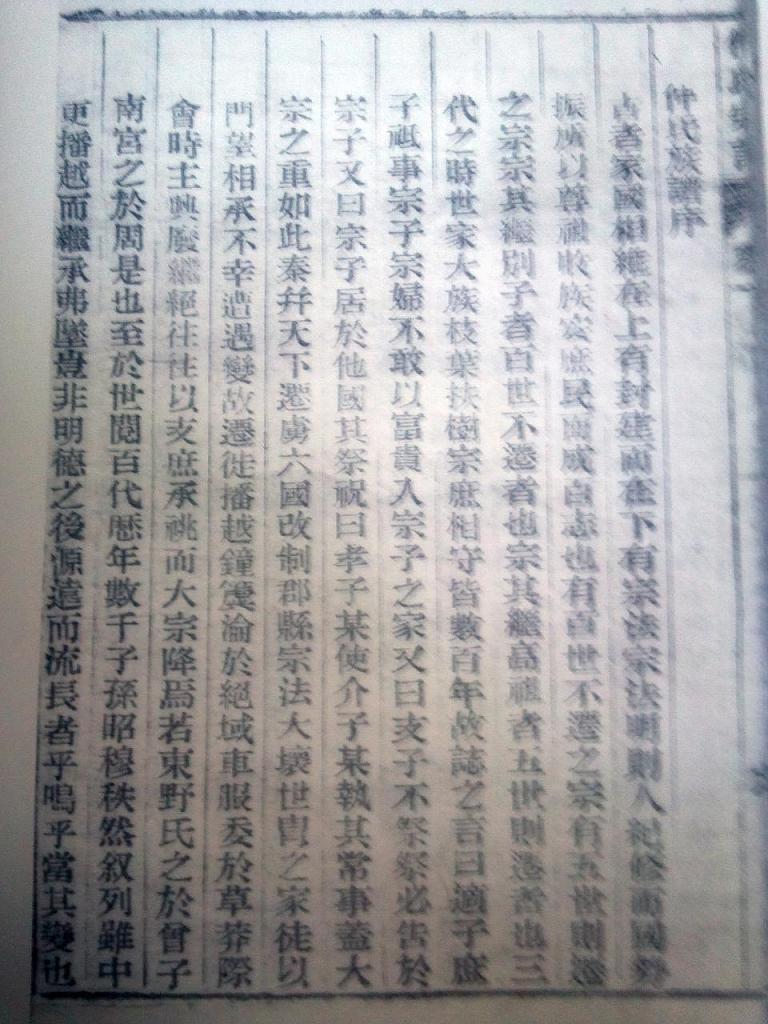 仲氏族譜序
古者家國相維在上有封建而在下有宗法宗法明則人紀修而國勢
振所以尊祖收族安庶民而成百志也有百世不遷之宗有五世則遷
之宗宗其繼別子者百世不遷者也宗其繼高祖者五世則遷者也三
代之時世家大族枝葉扶樹宗庶相守皆數百年故誌之言曰適子庶
子祗事宗子宗婦不敢以富貴入宗子之家又曰支子不祭祭必告於
宗子又曰宗子居於他國其祭祝曰孝子某使介子某執其常事蓋大
宗之重如此秦幷天下遷虜六國改制郡縣宗法大壞世胄之家徒以
門望相承不幸遭遇變故遷徙播越鐘簴淪於絕域車服委於草莽際
會時主興廢繼絕往往以支庶承祧而大宗降焉若東野氏之於曾子
南宮之於周是也至於世閱百代歷年數千子孫昭穆秩然叙列雖中
更播越而繼承弗墜豈非明德之後源遠而流長者乎嗚乎當其變也